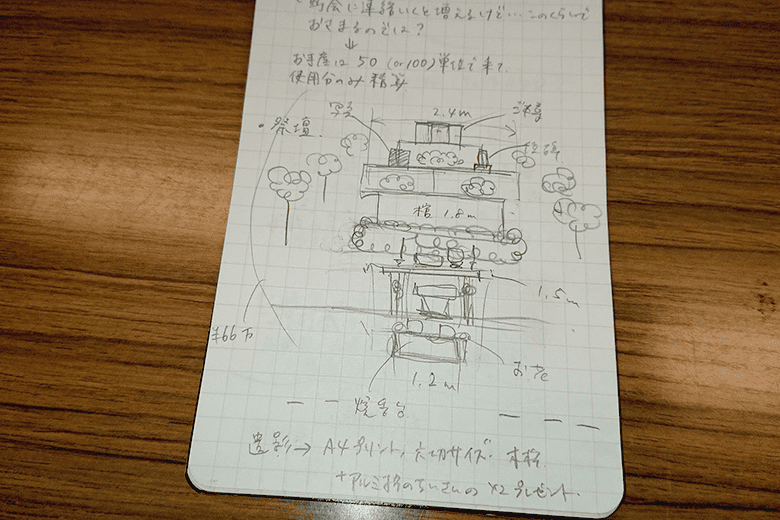 町会に連絡いくと増えるけど…このくらいで
おさまるのでは?
↓
お手産は 50 (or100)単位で来て
使用分のみ精算
2.4m
写真
・祭壇
位牌
棺 1.8m
1.5m
¥66万
1.2m
お花
焼香台
遺影→ A4プリント、六切サイズ・木枠
+アルミ枠のちいさいの ×2 プレゼント.